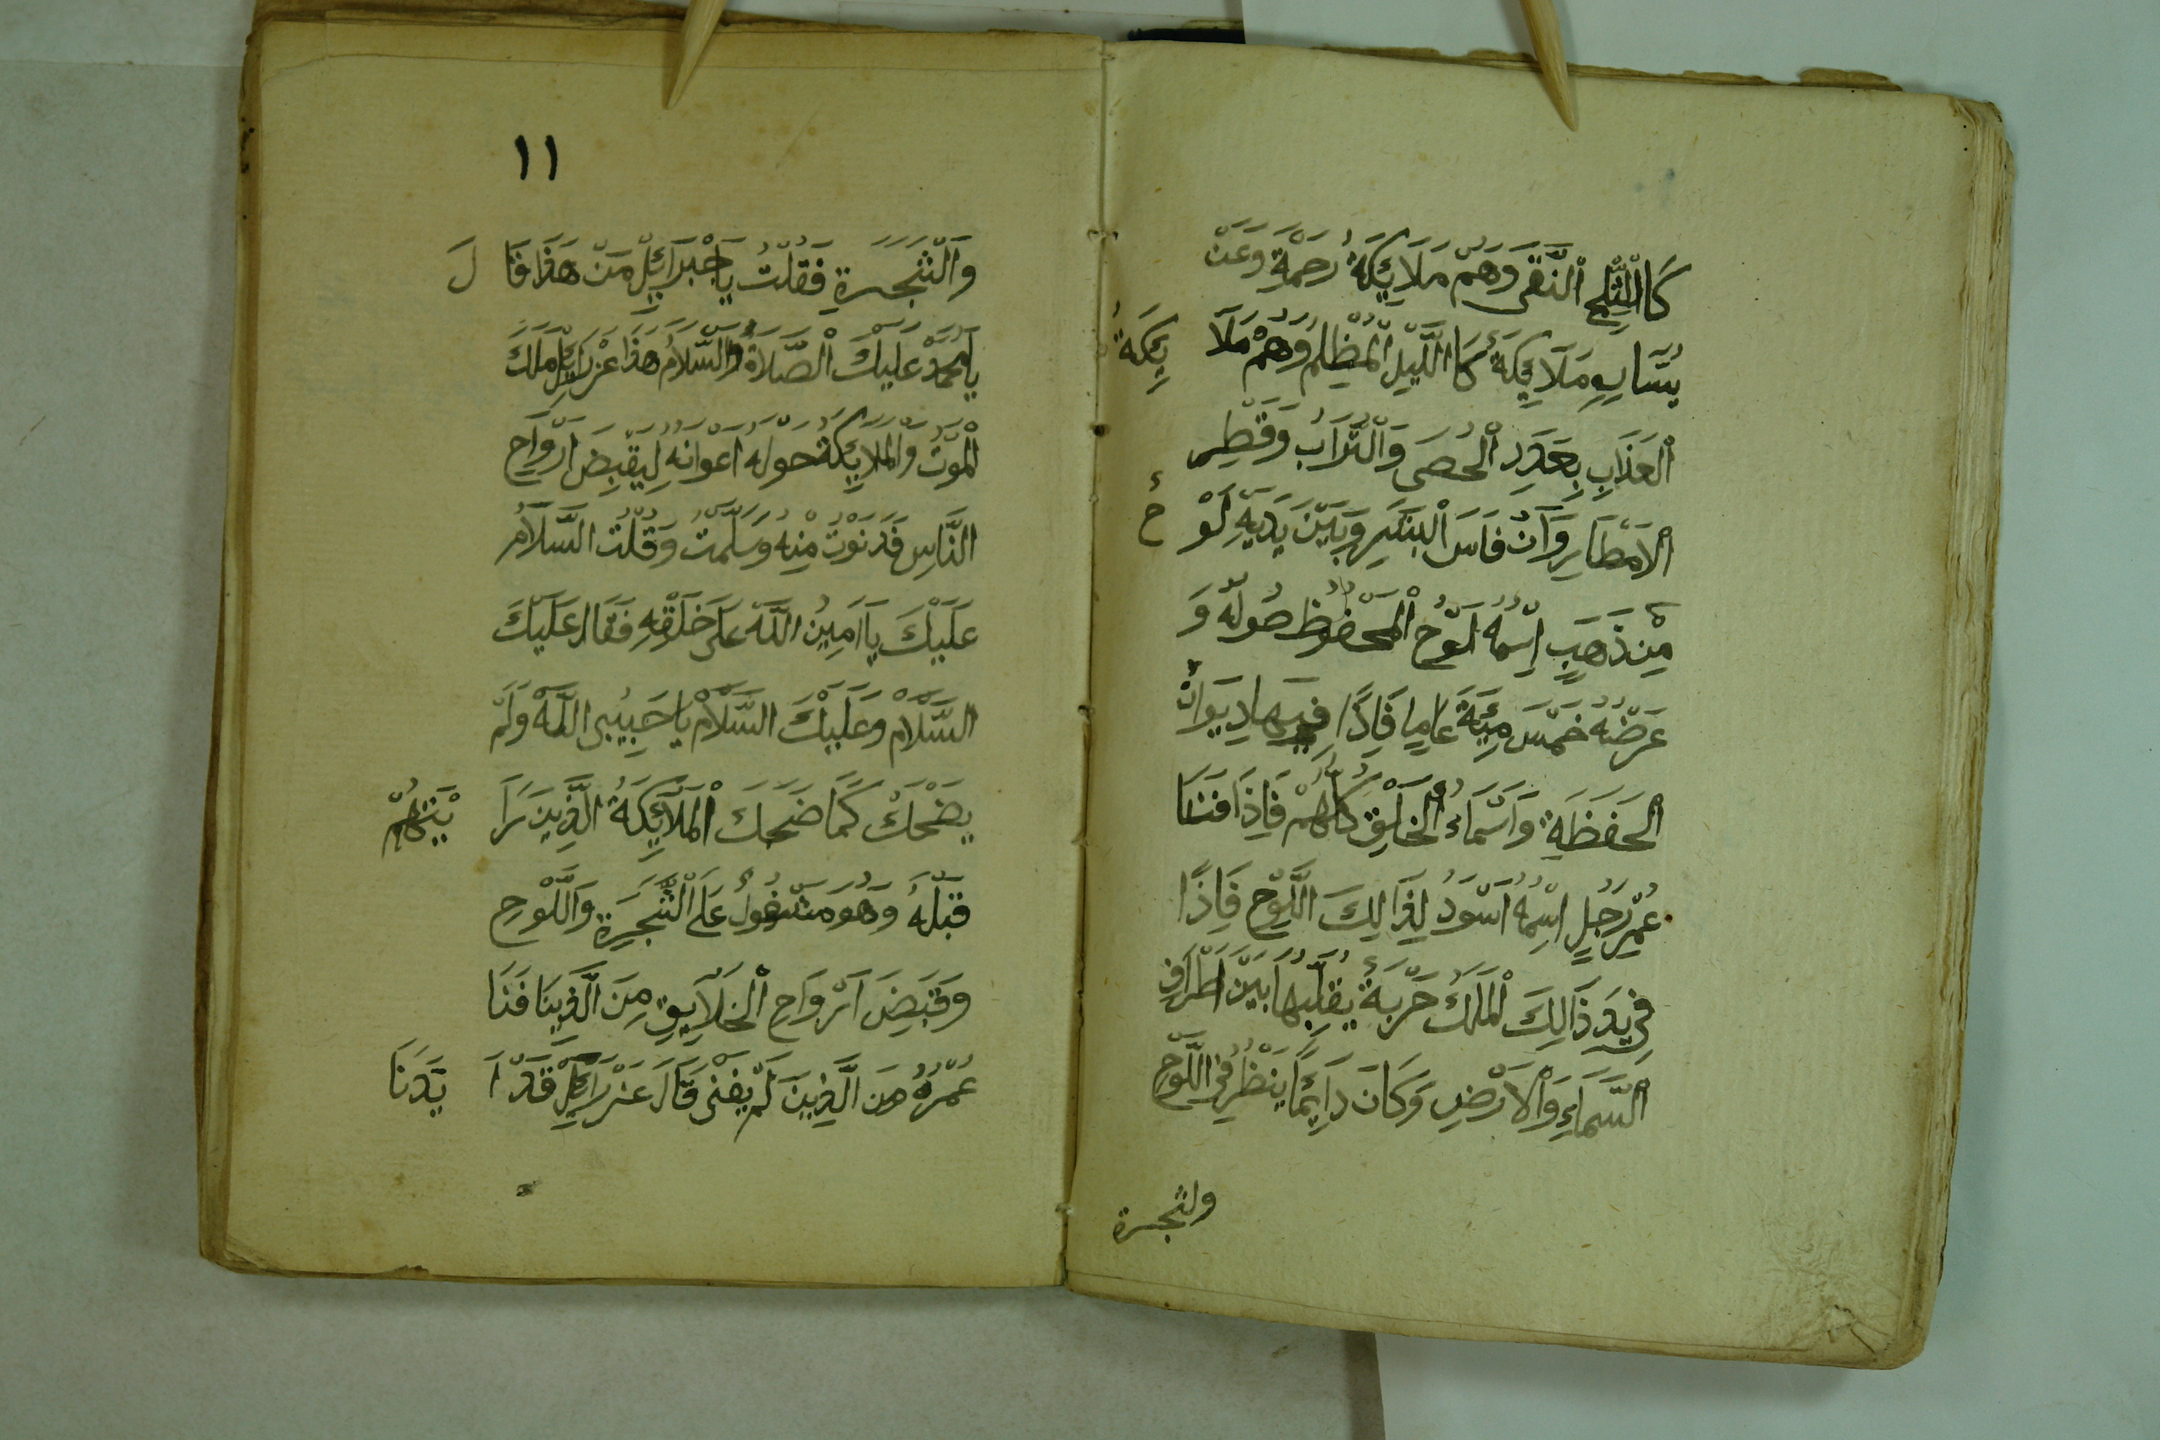 كَاالْثَّلْجِ الْنَّقَى وَهُمْ مَلَائِكَةُ رَحْمَةٍ وَعَنْ
يُسَّارِهِ مَلَائِكَةٌ كَااللَّيْلِ الْمُظْلِمُ وَهُمْ مَلَا يِٕكَةُ
الْعَذَابِ بِعَدَدِ الْحُصَى وَالْتُّرَابُ وَقَطْرِ
الْاَمْطَارِ وَاَنْفَاسَ الْبَشَرِ وَبَيْنَ يَدَيْهِ لَوْ حٌ
مِنْ ذَهَبٍ اِسْمُهُ لَوْحُ الْمَحْفُوظُ طُولُهُ وَ
عَرْضُهُ خَمْسَ مِئَةَ عَامٍا فَاِذًا فِيهَا دِيَوانُ
الْحَفَظَةِ وَاَسْمَاءُ الْخَلْقِ كُلُّهُمْ فَاِذَا فَنَا
عُمْرِ رَجُلٍ اِسْمُهُ اَسْوَدُ لِذَالِكَ اللَّوْحِ فَاِذًا
فِي يَدَ ذَالِكَ الْمَلَكُ حَرْبَةٌ يُقَلِّبُهَا بَيْنَ اَطْرَافِ
السَّمَاءِ وَالْاَرْضِ وَكَانَ دَائِمًا يَنْظُرُ فِي اللَّوْحِ
ولشجرة
١١
وَالْشَّجَرَةِ فَقُلْتُ يَاجَبْرَائِلِ مَنْ هَذَا قَا لَ
يَامُحَمَّدْ عَلَيْكَ الْصَّلَاةُ وَالْسَّلَامُ هَذَا عَزْرَائِلِ مَلَكَ
الْمَوْتُ وَالْمَلَائِكَةُ حَوْلَهُ اَعْوَانُهُ لِيَقْبِضَ اَرْوَاحِ
النَّاسِ فَدَنَوْتُ مِنْهُ وَسَلَّمْتُ وَقُلْتُ السَّلَامُ
عَلَيْكَ يَااَمِينُ اللَّهْ عَلَى خَلْقِهِ فَقَالَ عَلَيْكَ
السَّلَامْ وَعَلَيْكَ السَّلَامْ يَاحَبِيبِى اللَّهْ وَلَمْ
يَضْحَكْ كَمَا ضَحَكَ الْمَلَائِكَةُ الَّذِينَ رَا يْتَهُمْ
قَبْلَهُ وَهُوَ مَشْغُولٌ عَلَى الْشَّجَرَةِ وَاللَّوْحِ
وَقَبَضِ اَرْوَاحِ الْخَلَايِقِ مِنَ الَّذِينَا فَنَا
عُمْرُهُ مِنَ الَّذِينَ لَمْ يَفْنَى قَالَ عَزْرَائِلْ قَدْ اَ يَدَنَا